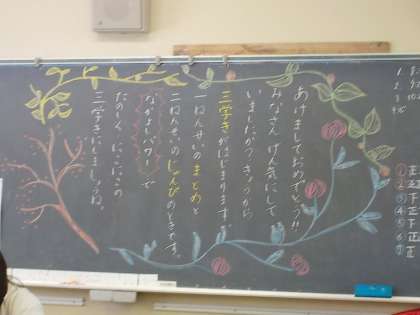 あけましておめでとう!!
みなさん げん気にして
いましたか?きょうから
三学きがはじまります。
一ねんせいのまとめと
二ねんせいのじゅんびのときです。
なかよしパワーで
たのしく にこにこの
三学きにしましょうね。
1.
2.
3.
4.
① 正
② 下
③ 正
④ 下
⑤ 正
⑥ 正